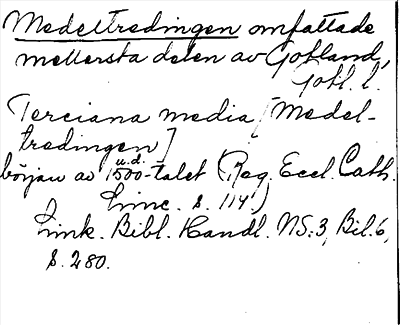 Medeltredingen omfattade
mellersta delen av Gotland,
Gotl. l.
Terciana media [Medel-
tredingen]
u.d.
början av 1500-talet (Reg. Eccl. Cath.
Linc. s. 114')
Link. Bibl. Handl. NS:3, Bil.6,
s. 280.